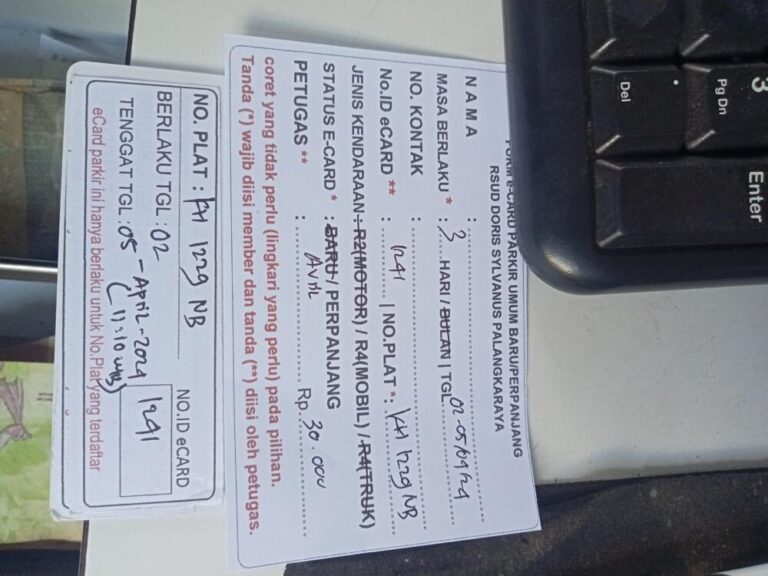 FORM e-CARD PARKIR UMUM BARU/PERPANJANG
RSUD DORIS SYLVANUS PALANGKARAYA
NAMA :
MASA BERLAKU * : 3 HARI / BULAN | TGL 02-05/04/24
NO. KONTAK :
No.ID eCARD ** : 1241 | NO.PLAT *: KH 1229 NB
JENIS KENDARAAN : R2(MOTOR) / R4(MOBIL) / R4(TRUK)
STATUS E-CARD * : BARU / PERPANJANG
PETUGAS ** : Avril Rp 30.000
coret yang tidak perlu (lingkari yang perlu) pada pilihan.
Tanda (*) wajib diisi member dan tanda (**) diisi oleh petugas.
NO. PLAT : KH 1229 NB
NO.ID eCARD
1241
BERLAKU TGL : 02
TENGGAT TGL : 05 - April - 2024
(11:10 WIB)
eCard parkir ini hanya berlaku untuk No.Plat yang terdaftar
3
Pg Dn
Enter
.
Del